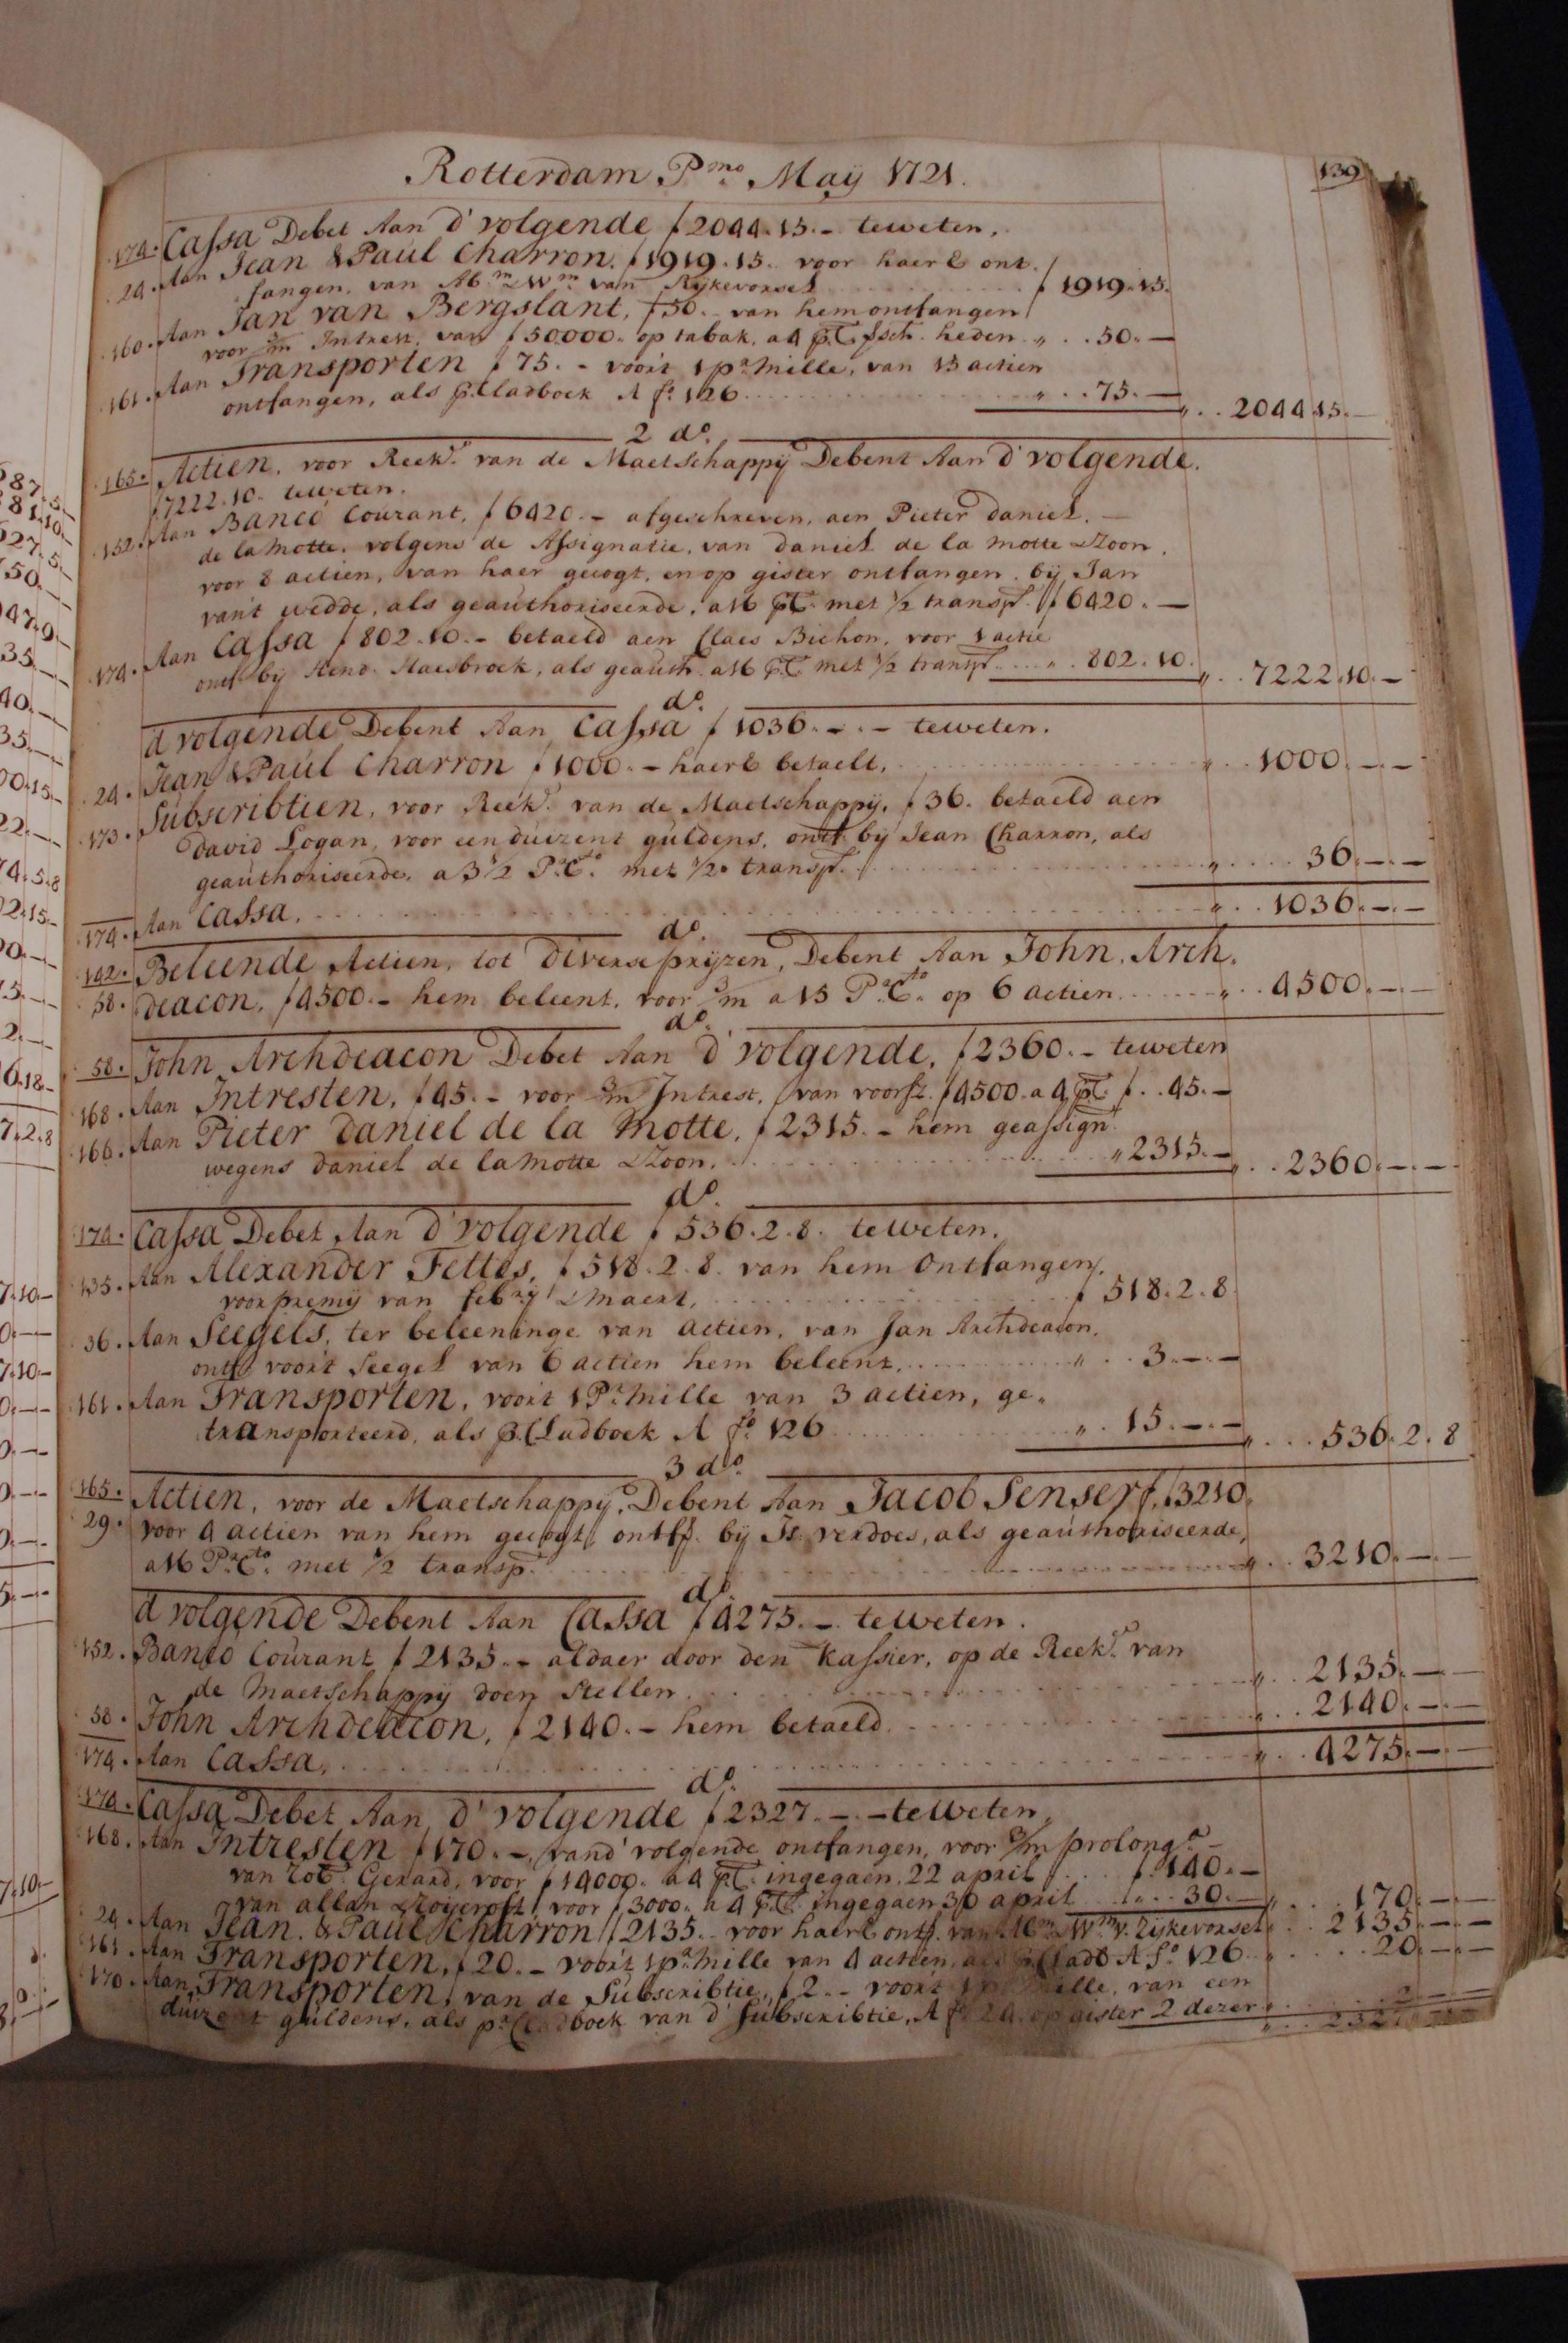 Rotterdam Pmo. Maÿ 1721.
139
174. Cassa Debet Aan d'volgende ƒ2044.15.- teweten.
24. Aan Jean & Paul Charron. ƒ1919.15. voor haer E ont-
fangen, van Abm. & Wm. van Rÿkevorsel ƒ 1919.15.
160. Aan Jan van Bergslant, ƒ50.- van hem ontfangen
voor 3/m Intrest, van ƒ5000.- op tabak, a 4 p.Ct. ssch. heden „ . . 50.—
161. Aan Transporten ƒ 75.- voor't 1 pr. mille, van 15 actien
ontfangen, als p. Cladboek A fo. 126 „ . . 75.— „ . . 2044.15.—
2 do.
165. Actien, voor Reekg. van de Maetschappÿ Debent Aan d'volgende.
ƒ7222.10.- teweten.
152. Aan Banco Courant, ƒ6420.- afgeschreven, aen Pieter daniel.—
de la Motte. volgens de Assignatie, van daniel de la motte & Zoon,
voor 8 actien, van haer gecogt, en op gister ontfangen. bÿ Jan
van't wedde, als geauthoriseerde, a 16 p.Ct. met 1/2 transpt. ƒ6420.—
174. Aan Cassa ƒ802.10.- betaeld aen Claes Bichon, voor 1 actie
ontf. bÿ Hend. Haesbroek, als geauth. a 16 p.Ct. met 1/2 transpt. „ . 802.10. „ . . 7222.10.—
do.
d volgende Debent Aan Cassa ƒ 1036.-.- teweten.
24. Jean & Paul Charron ƒ1000.- haer E betaelt. „ . . 1000.-.-
173. Subscribtien, voor Reekg. van de Maetschappÿ, ƒ36. betaeld aen
david Logan, voor een duizent guldens, ontf. bÿ Jean Charron, als
geauthoriseerde, a 3 1/2 Pr. Cto. met 1/20 transpt. „ . . . 36.-.-
174. Aan Cassa. „ . . 1036.-.-
do.
142. Beleende Actien, tot diverse prÿzen, Debent Aan John. Arch.
58. deacon, ƒ4500.- hem beleent, voor 3/m a 15 Pr. Cto. op 6 actien „ . . 4500.-.-
do.
58. John Archdeacon Debet Aan d'volgende, ƒ2360.- teweten
168. Aan Intresten, ƒ45.- voor 3/m Intrest, van voorsz. ƒ4500. a 4 p.Ct. ƒ . . 45.—
166. Aan Pieter daniel de la Motte, ƒ2315.- hem geassign.
wegens daniel de la Motte & Zoon. „ 2315.— „ . . 2360.-.-
do.
174. Cassa Debet Aan d'volgende ƒ536.2.8. teweten.
135. Aan Alexander Fettes, ƒ518.2.8. van hem Ontfangen,
voor premÿ van febrÿ & Maert, ƒ 518.2.8.
36. Aan Seegels, ter beleeninge van actien, van Jan Archdeacon.
ontf. voor't Seegel van 6 actien hem beleent. „ . . 3.-.-
161. Aan Transporten, voor't 1 Pr. mille van 3 actien, ge-
transporteerd, als p. Cladboek A fo. 126 „ . 15.-.- „ . . . 536.2.8
3 do.
165. Actien, voor de Maetschappÿ, Debent Aan Jacob Senserf, ƒ3210.
29. voor 4 actien van hem gecogt, ontff. bÿ Is. verdoes, als geauthoriseerde,
a 16 Pr. Cto. met 1/2 transp. „ . . 3210.-.-
do.
d volgende Debent Aan Cassa ƒ4275.- teweten.
152. Banco Courant ƒ2135.- aldaer door den kassier, op de Reekg. van
de Maetschappÿ doen Stellen. „ . . 2135.-.-
58. John Archdeacon, ƒ2140.- hem betaeld. „ . . 2140.-.-
174. Aan Cassa, „ . . 4275.-.-
do.
174. Cassa Debet Aan d'volgende ƒ2327.-.- teweten,
168. Aan Intresten ƒ170.-, van d'volgende ontfangen, voor 3/m prolong.
van Rob. Gerard, voor ƒ14000. a 4 p.Ct. ingegaen, 22 april ƒ. 140.—
van allan voor ƒ3000. a 4 p.Ct. ingegaen 30 april „ . . 30.— „ . . . 170.-.-
24. Aan Jean. & Paul Charron ƒ2135.- voor haer E ontf. van Abm. & Wm. v. Rÿkevorsel „ . . 2135.-.-
161. Aan Transporten, ƒ20.- voor't 1 pr. mille van 4 actien, als Clad A fo. 126 „ . . . 20.-.-
170. Aan Transporten, van de Subscribtie, ƒ2.- voor't mille, van een
duizent guldens, als pr. Cladboek van d'Subscribtie, A fo. 24. op gister 2 dezer „ . . . 2.-.-
„ . . 2327